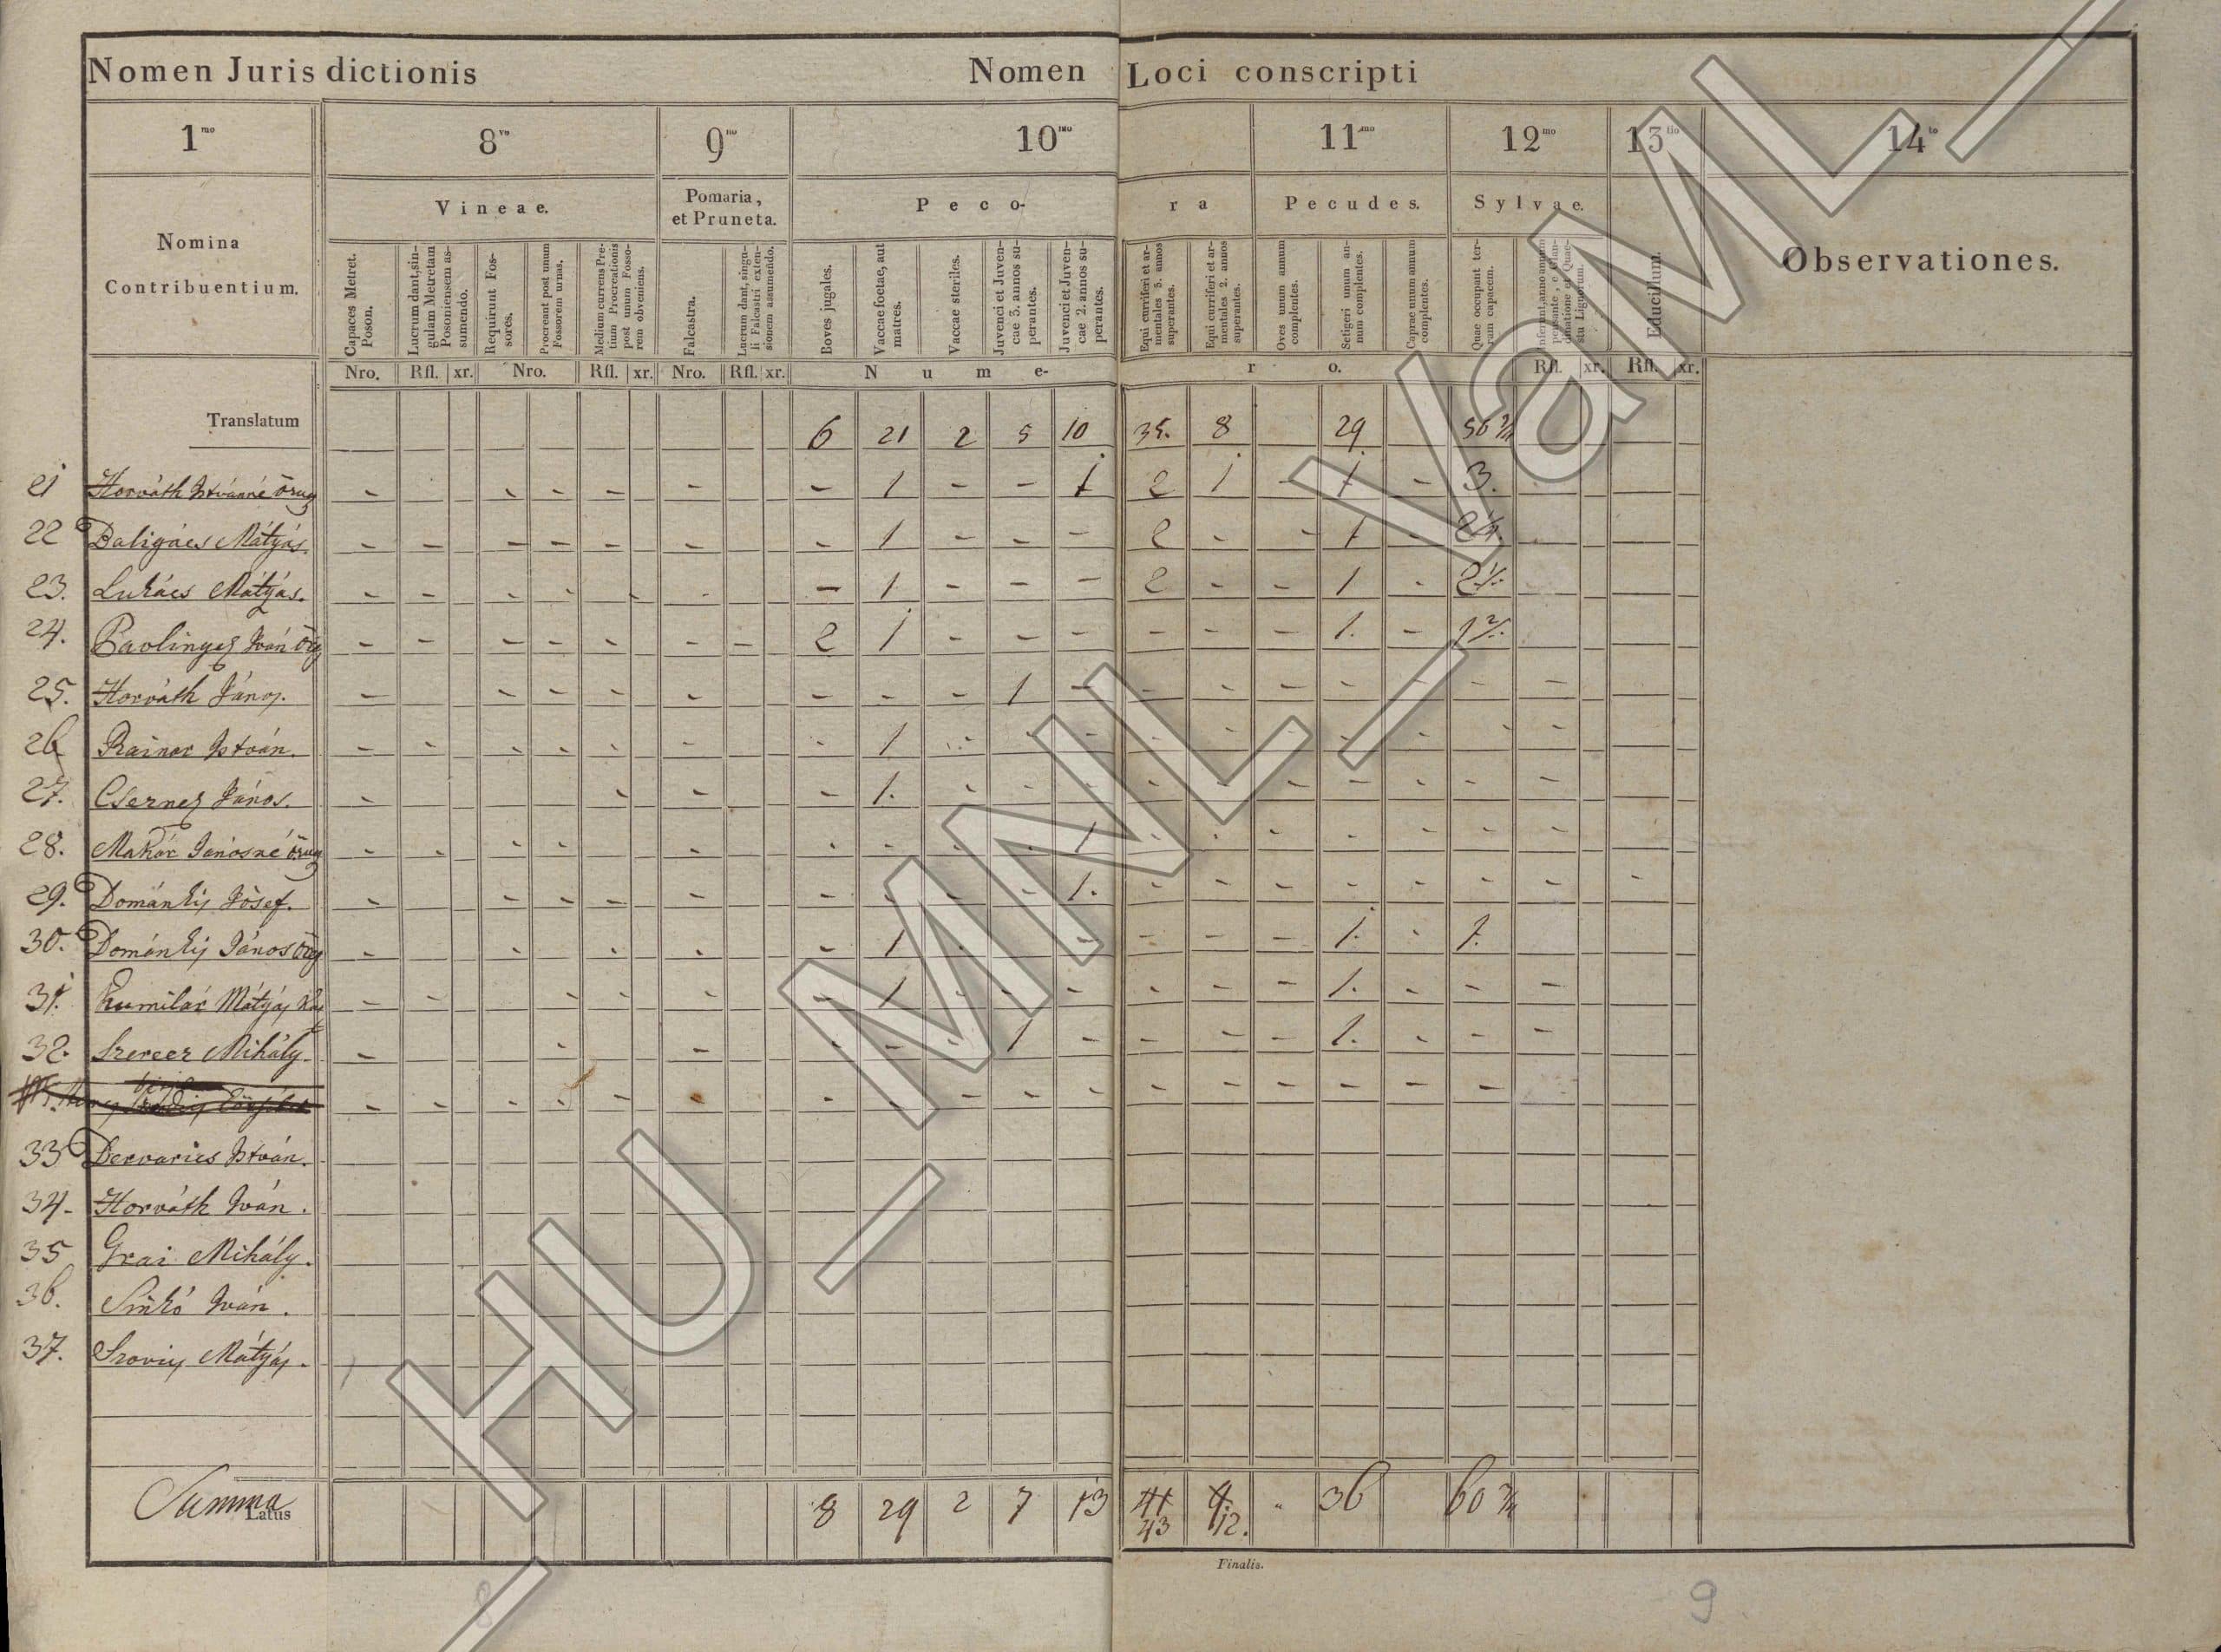 Nomen Juris dictionis Nomen Loci conscripti
1mo 8vo 9no 10mo 11mo 12mo 13tio 14to
Nomina Contribuentium.
Vineae.
Pomaria, et Pruneta.
Peco- ra
Pecudes.
Sylvae.
Educillum.
Observationes.
Capaces Metret. Poson.
Lucrum dant, sin- gulam Metretam Posoniensem as- sumendo.
Requirunt Fos- sores.
Procreant post unum Fossorem urnas.
Medium currens Pre- tium Procreationis post unum Fosso- rem obveniens.
Falcastra.
Lucrum dant, singu- li Falcastri exten- sionem assumendo.
Boves jugales.
Vaccae foetae, aut matres.
Vaccae steriles.
Juvenci et Juven- cae 3. annos su- perantes.
Juvenci et Juven- cae 2. annos su- perantes.
Equi curriferi et ar- mentales 3. annos superantes.
Equi curriferi et ar- mentales 2. annos superantes.
Oves unum annum complentes.
Setigeri unum an- num complentes.
Caprae unum annum complentes.
Quae occupant ter- ram capacem.
Nro. Rfl. xr. Nro. Rfl. xr. Nro. Rfl. xr. N u m e- r o. Rfl. xr. Rfl. xr.
Translatum 6 21 2 5 10 35. 8 29 56 2/4
21 Horváth Istvánné - - - - - - - 1 - - 1 2 1 - 1 - 3.
22 Baligács Mátyás. - - - - - - - 1 - - - 2 - - 1 -
23. Lukács Mátyás. - - - - - - - 1 - - - 2 - - 1 -
24. Pavlinyez Iván - - - - - - - 2 1 - - - - - - 1. -
25. Horváth János. - - - - - - - - 1 - - - - - - - -
26 Rainer István. - - - - - - - 1 - - - - - - - - -
27. Csernez János. - - - - 1. - - - - - - - - - -
28. Makár Jánosné - - - - - - - - - 1 - - - - - - -
29. Dománkis Jósef. - - - - - - - - - 1. - - - - - - - -
30. Dománkis János - - - - - 1 - - - - - 1. - 1.
31. Mátyás - - - - - - 1 - - - - - - 1. - - -
32. Szerecz Mihály. - - - - - - 1 - - - - 1. - - -
33 Dervarics István.
34. Horváth Iván.
35 Grai Mihály.
36. Sinkó Iván.
37. Szovis Mátyás.
Summa
Latus 8 29 2 7 13 41 9. " 36 60 2/4
43 12.
Finalis.
8 9
_HU_MNL_VaML_